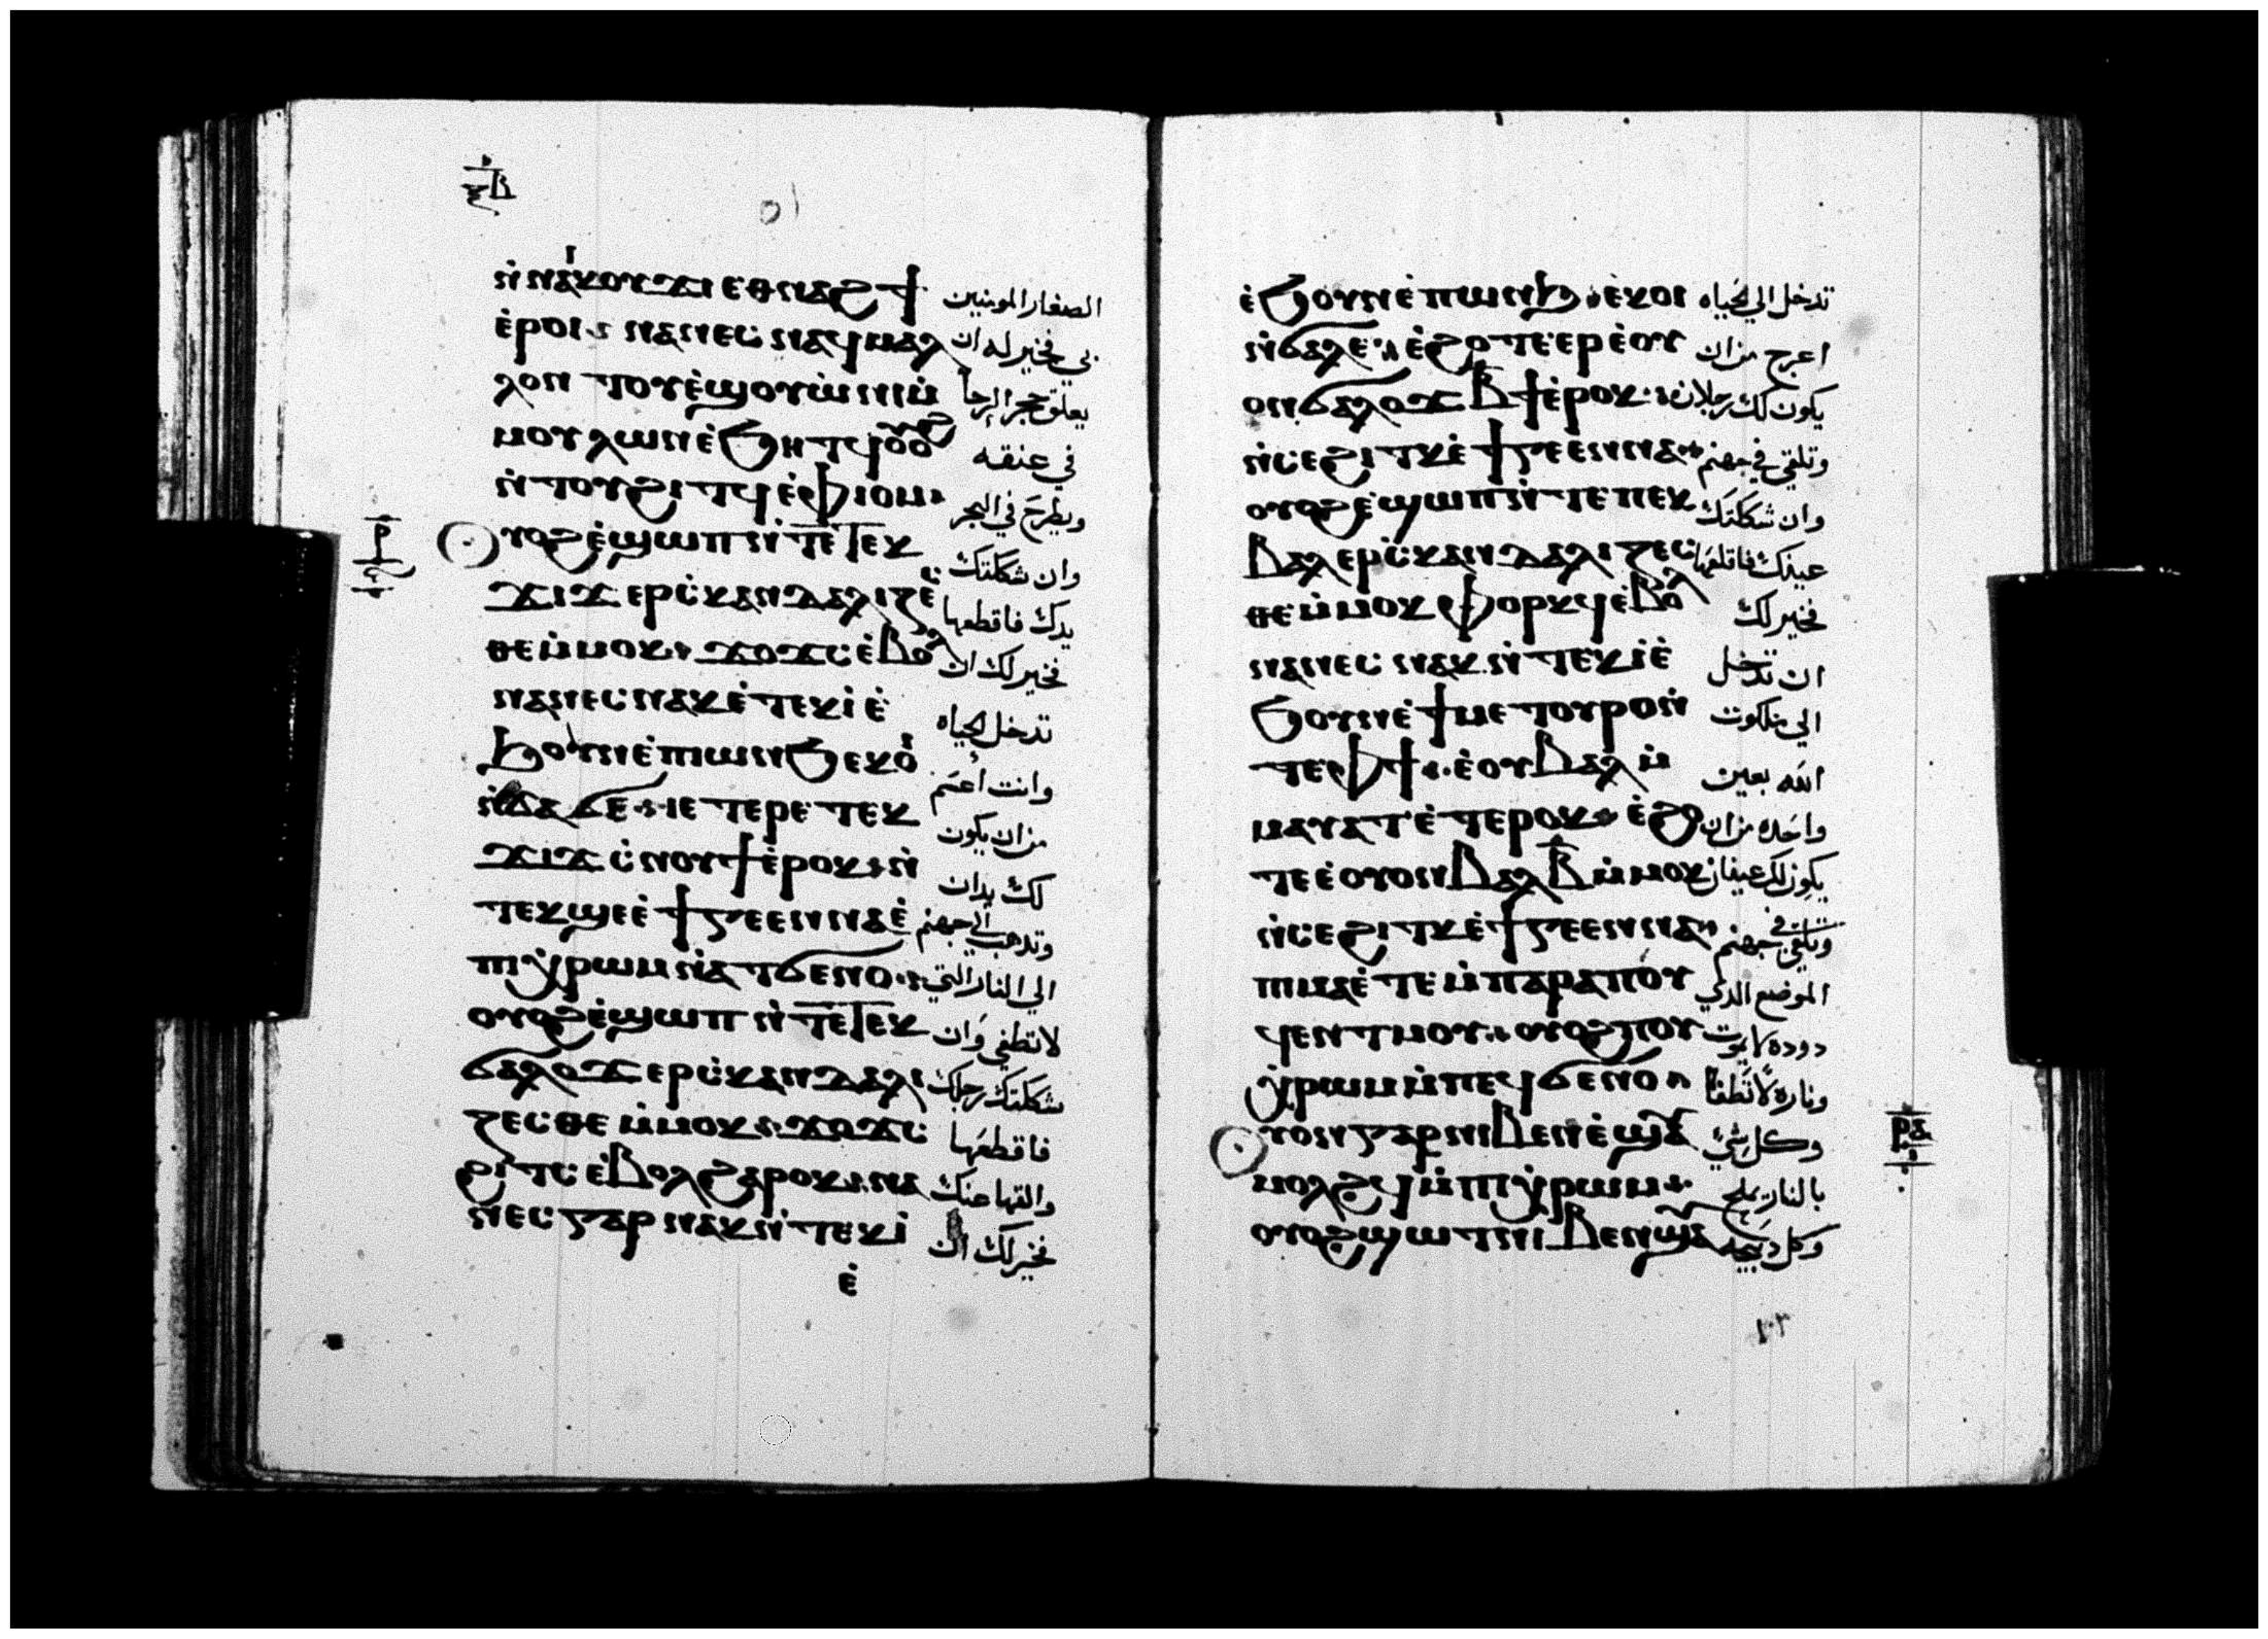 ⲛ̀ⲛⲁⲓⲕⲟⲩϫⲓ ⲉⲑⲛⲁϩϯ الصغار المومنين
ⲉ̀ⲣⲟⲓ ⲛⲁⲛⲉⲥ ⲛⲁϥ ⲙⲁⲗ بي فخير له ان
ⲗⲟⲛ ⲛⲧⲟⲩⲉ̀ϣ ⲟⲩⲱ̀ⲛⲓ ⲙ̀ يعلق حجر الرحا
ⲙⲟⲩⲗⲱⲛ ⲉ̀ϧⲏⲧϥ ⲟⲩⲟϩ في عنقه
ⲛ̀ⲧⲟⲩϩⲓⲧϥ ⲉ̀ⲫⲓⲟⲙ ويطرح في البحر
ⲣ̅
ⲟⲩⲟϩ ⲉ̀ϣⲱⲡ ⲛ̀ⲧⲉ ⲧⲉⲕ وان شككتك
ϫⲓϫ ⲉⲣⲥ̀ⲕⲁⲛⲇⲁⲗⲓⲍⲉⲥ يدك فاقطعها
ⲑⲉ ⲙ̀ⲙⲟⲕ ϫⲟϫⲥ ⲉ̀ⲃⲟⲗ فخير لك ان
ⲛⲁⲛⲉⲥ ⲛⲁⲕ ⲉ̀ⲧⲉⲕⲓ̀ ⲉ̀ تدخل الحياه
ϧⲟⲩⲛ ⲉ̀ⲡⲱⲛϧ ⲉⲕⲟⲓ وانت اعسم
ⲛ̀ϭⲁϭⲉ ⲓⲉ ⲧⲉⲣⲉ ⲧⲉⲕ من ان يكون
ϫⲓϫ ⲥ̀ⲛⲟⲩϯ ⲉ̀ⲣⲟⲕ ⲛ̀ لك يدان
ⲧⲉⲕϣⲉ ⲉ̀ϯⲅⲉⲉⲛⲛⲁ ⲉ̀ وتدهب الي جهنم
ⲡⲓⲭ̀ⲣⲱⲙ ⲛ̀ⲁⲧϭⲉⲛⲟ الي النار التي
ⲟⲩⲟϩ ⲉ̀ϣⲱⲡ ⲛ̀ⲧⲉ ⲧⲉⲕ لا تطفي وان
ϭⲁⲗⲟϫ ⲉⲣⲥ̀ⲕⲁⲛⲇⲁⲗⲓ شككتك رجلك
ⲍⲉⲥⲑⲉ ⲙ̀ⲙⲟⲕ ϫⲟϫⲥ فاقطعها
ϩⲓⲧⲥ ⲉ̀ⲃⲟⲗ ϩⲁⲣⲟⲕ ⲛⲁ والقها عنك
ⲛⲉⲥ ⲅⲁⲣ ⲛⲁⲕ ⲛ̀ⲧⲉⲕⲓ̀ فخير لك ان
ⲉ̀
ⲉ̀ϧⲟⲩⲛ ⲉ̀ⲡⲱⲛϧ ⲉⲕⲟⲓ تدخل الي الحياه
ⲛ̀ϭⲁⲗⲉ ⲉ̀ϩⲟⲧⲉ ⲉⲣⲉ ⲟⲩ اعرج من ان
ⲟⲛ ϭⲁⲗⲟϫ ⲃ̅ϯ ⲉ̀ⲣⲟⲕ يكون لك رجلان
ⲛ̀ⲥⲉϩⲓⲧⲕ ⲉ̀ϯⲅⲉⲉⲛⲛⲁ وتلقي في جهنم
ⲟⲩⲟϩ ⲉ̀ϣⲱⲡ ⲛ̀ⲧⲉ ⲡⲉⲕ وان شككتك
ⲃⲁⲗ ⲉⲣⲥ̀ⲕⲁⲛⲇⲁⲗⲓⲍⲉⲥ عينك فاقلعها
ⲑⲉ ⲙ̀ⲙⲟⲕ ⲫⲟⲣⲕϥ ⲉ̀ⲃⲟⲗ فخير لك
ⲛⲁⲛⲉⲥ ⲛⲁⲕ ⲛ̀ⲧⲉⲕⲓ̀ ⲉ̀ ان تدخل
ϧⲟⲩⲛ ⲉ̀ϯⲙⲉⲧⲟⲩⲣⲟ ⲛ̀ الي ملكوت
ⲧⲉ ⲫϯ ⲉ̀ⲟⲩⲃⲁⲗ ⲙ̀ الله بعين
ⲙⲁⲩⲁⲧ ⲉ̀ⲧⲉⲣⲟⲕ ⲉ̀ϩⲟ واحده من ان
ⲧⲉ ⲉ̀ⲟⲩⲟⲛ ⲃⲁⲗ ⲃ̅ ⲙ̀ⲙⲟⲕ يكون لك عينان
ⲛ̀ⲥⲉϩⲓⲧⲕ ⲉ̀ϯⲅⲉⲉⲛⲛⲁ وتلقي في جهنم
ⲡⲓⲙⲁ ⲉ̀ⲧⲉ ⲙ̀ⲡⲁⲣⲁ ⲡⲟⲩ الموضع الدي
ϥⲉⲛⲧ ⲙⲟⲩ ⲟⲩⲟϩ ⲡⲟⲩ دوده لا يموت
ⲭ̀ⲣⲱⲙ ⲙ̀ⲡⲉϥϭⲉⲛⲟ وناره لا تطفا
ⲣ̅ⲁ̅
ⲟⲩⲟⲛ ⲅⲁⲣ ⲛⲓⲃⲉⲛ ⲉ̀ϣⲁⲩ وكل شي
ⲙⲟⲗϩϥ ⲙ̀ⲡⲓⲭ̀ⲣⲱⲙ بالنار يملح
ⲟⲩⲟϩ ϣⲱⲧ ⲛⲓⲃⲉⲛ ϣⲁⲩ وكل دبيحه